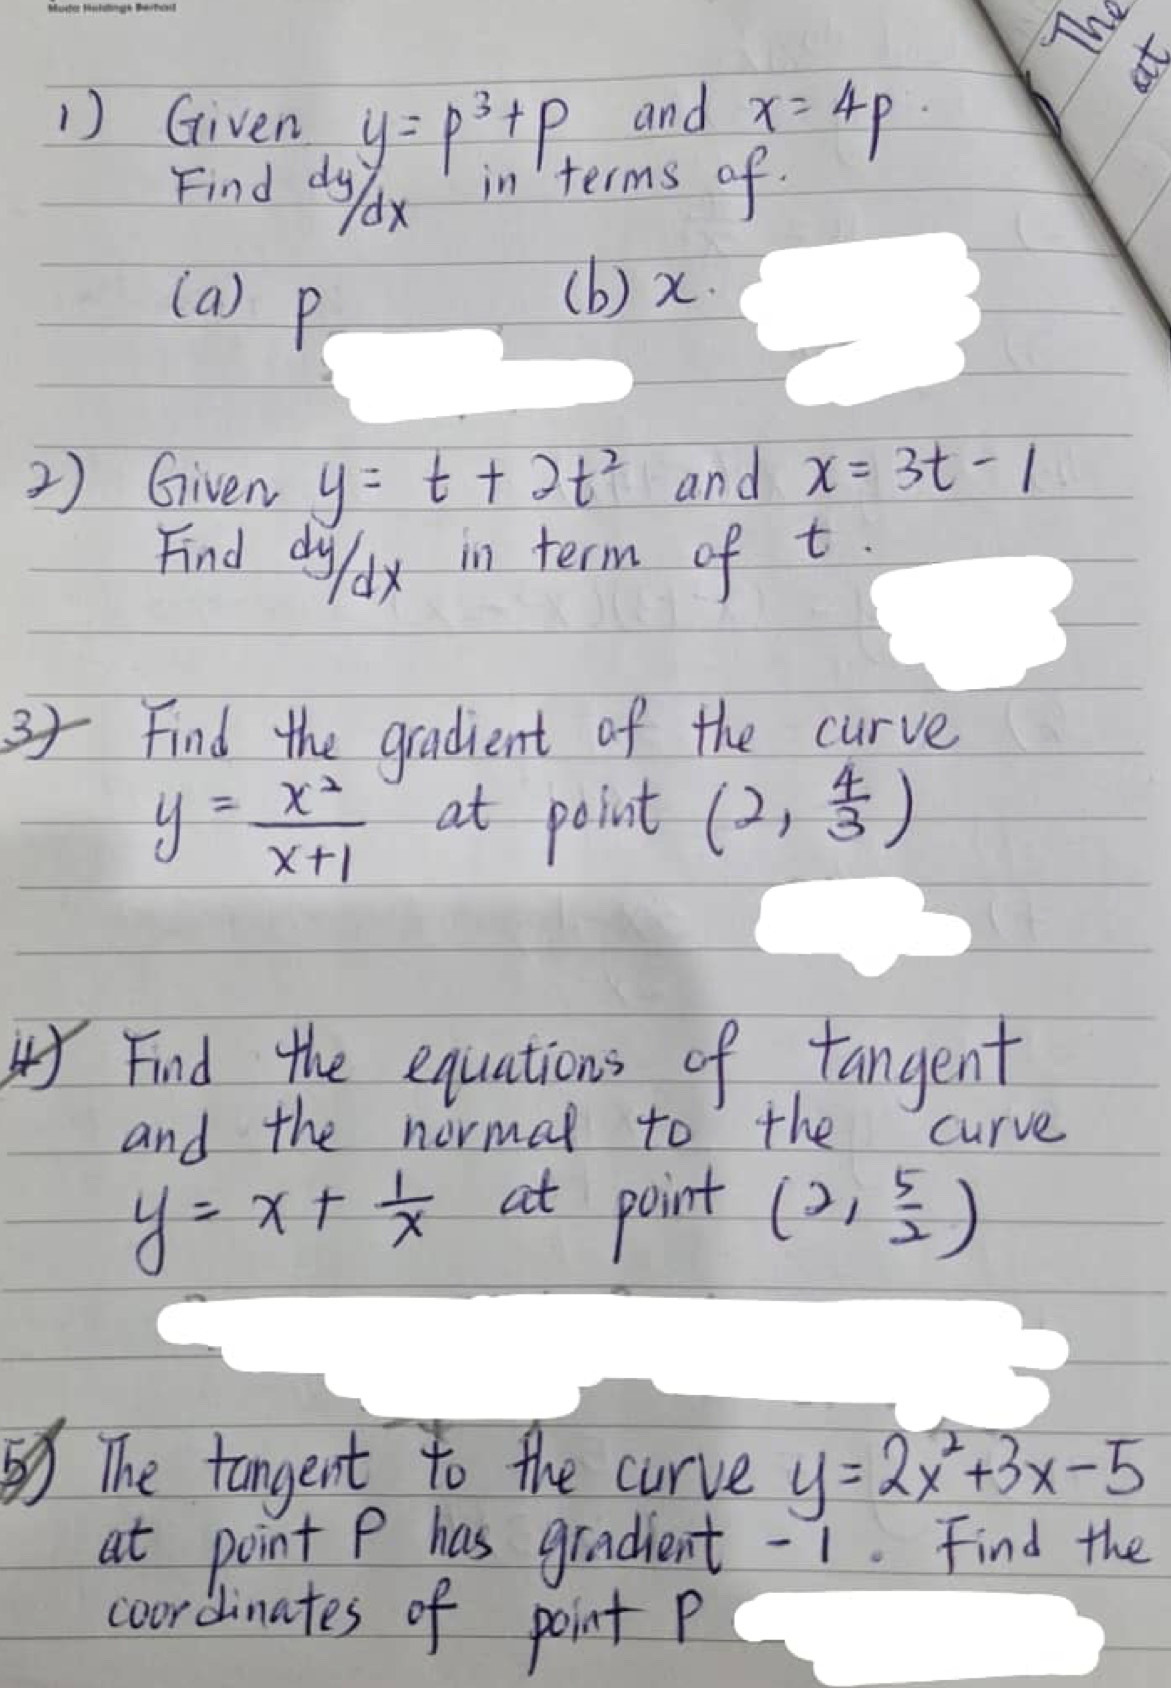 Muda Holdings Berhad
The
at
1) Given y = p³ + p and x = 4p.
Find dy/dx in terms of.
(a) p (b) x.
2) Given y = t + 2t² and x = 3t - 1
Find dy/dx in term of t.
3) Find the gradient of the curve
y = x²/x+1 at point (2, 4/3)
4) Find the equations of tangent
and the normal to the curve
y = x + 1/x at point (2, 5/2)
5) The tangent to the curve y = 2x² + 3x - 5
at point P has gradient -1. Find the
coordinates of point P